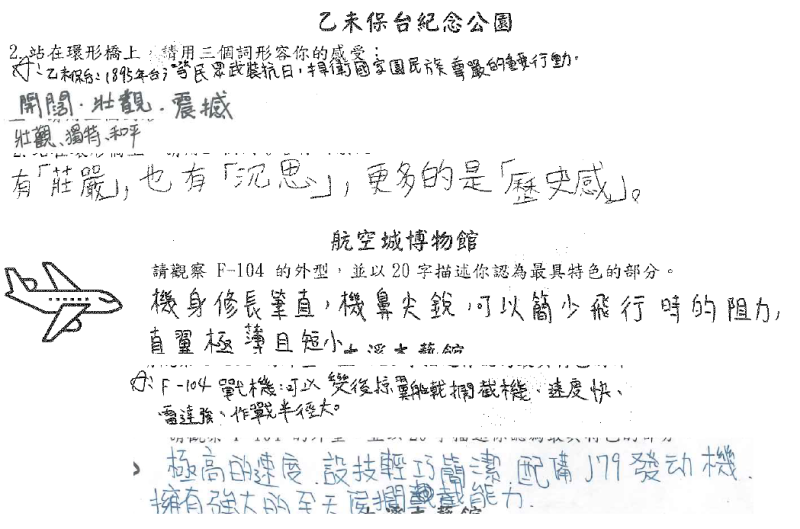 乙未保台紀念公園
2. 站在環形橋上，請用三個詞形容你的感受：
A:乙未保台:1895年台灣民眾武裝抗日,捍衛國家國民族尊嚴的重要行動.
開闊.壯觀.震撼
壯觀、獨特、和平
有「莊嚴」,也有「沉思」,更多的是「歷史感」。
航空城博物館
請觀察 F-104 的外型，並以 20 字描述你認為最具特色的部分。
機身修長筆直,機鼻尖銳,可以簡少飛行時的阻力,
直翼極薄且短小
大溪木藝館
A:F-104戰機:可以 變後掠翼艦載攔截機、速度快、
雷達強、作戰半徑大。
請觀察 F-104 的外型，並以 20 字描述你認為最具特色的部分
極高的速度.設技輕巧簡潔 配備J79發动機.
擁有強大的全天侯攔截能力.
大溪木藝館